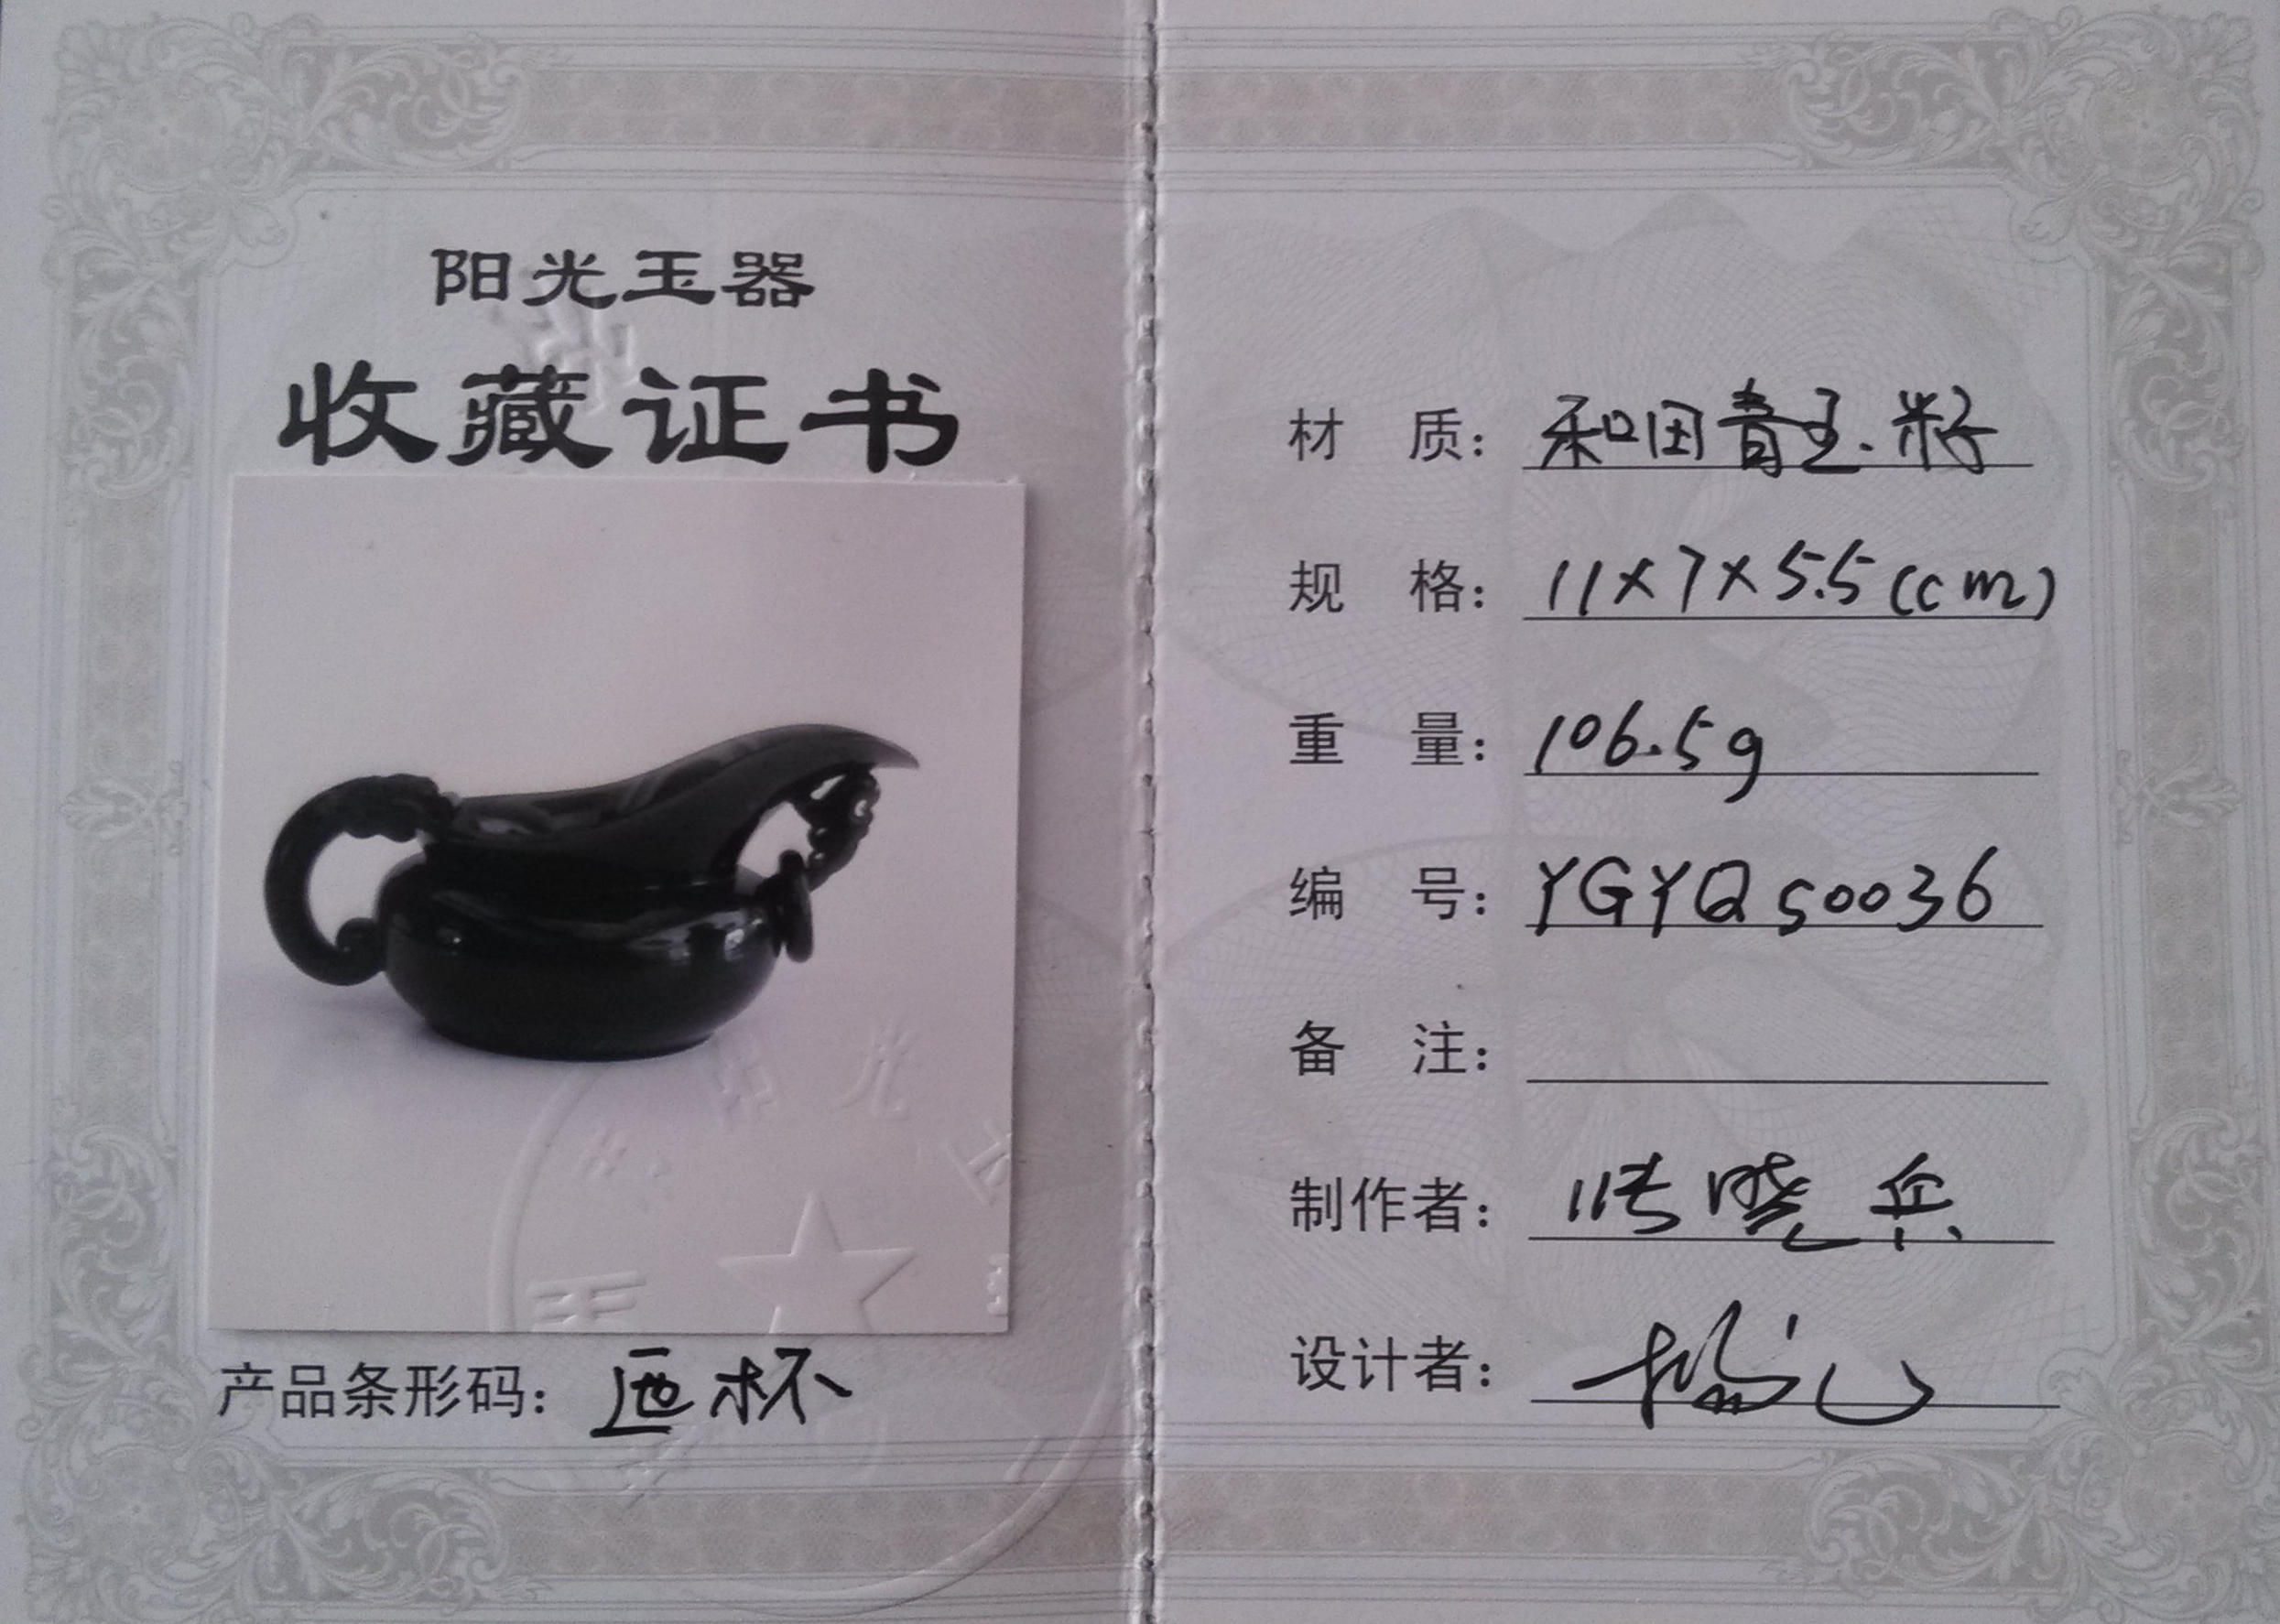 阳光玉器
收藏证书
产品条形码：匜杯
材 质：和田青玉.籽
规 格：11×7×5.5(cm)
重 量：106.5g
编 号：YGYQ50036
备 注：
制作者：张晓兵
设计者：